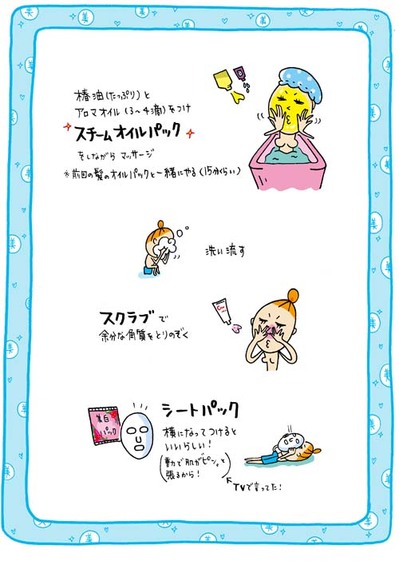 椿油(たっぷり)と
アロマオイル(3〜4滴)をつけ
スチームオイルパック
をしながら マッサージ
*前回の髪のオイルパックと一緒にやる(15分くらい)
洗い流す
スクラブで
余分な角質をとりのぞく
シートパック
美白
パック
横になってつけると
いいらしい!
(重力で肌がピンッと
張るから!)
TVで言ってた!